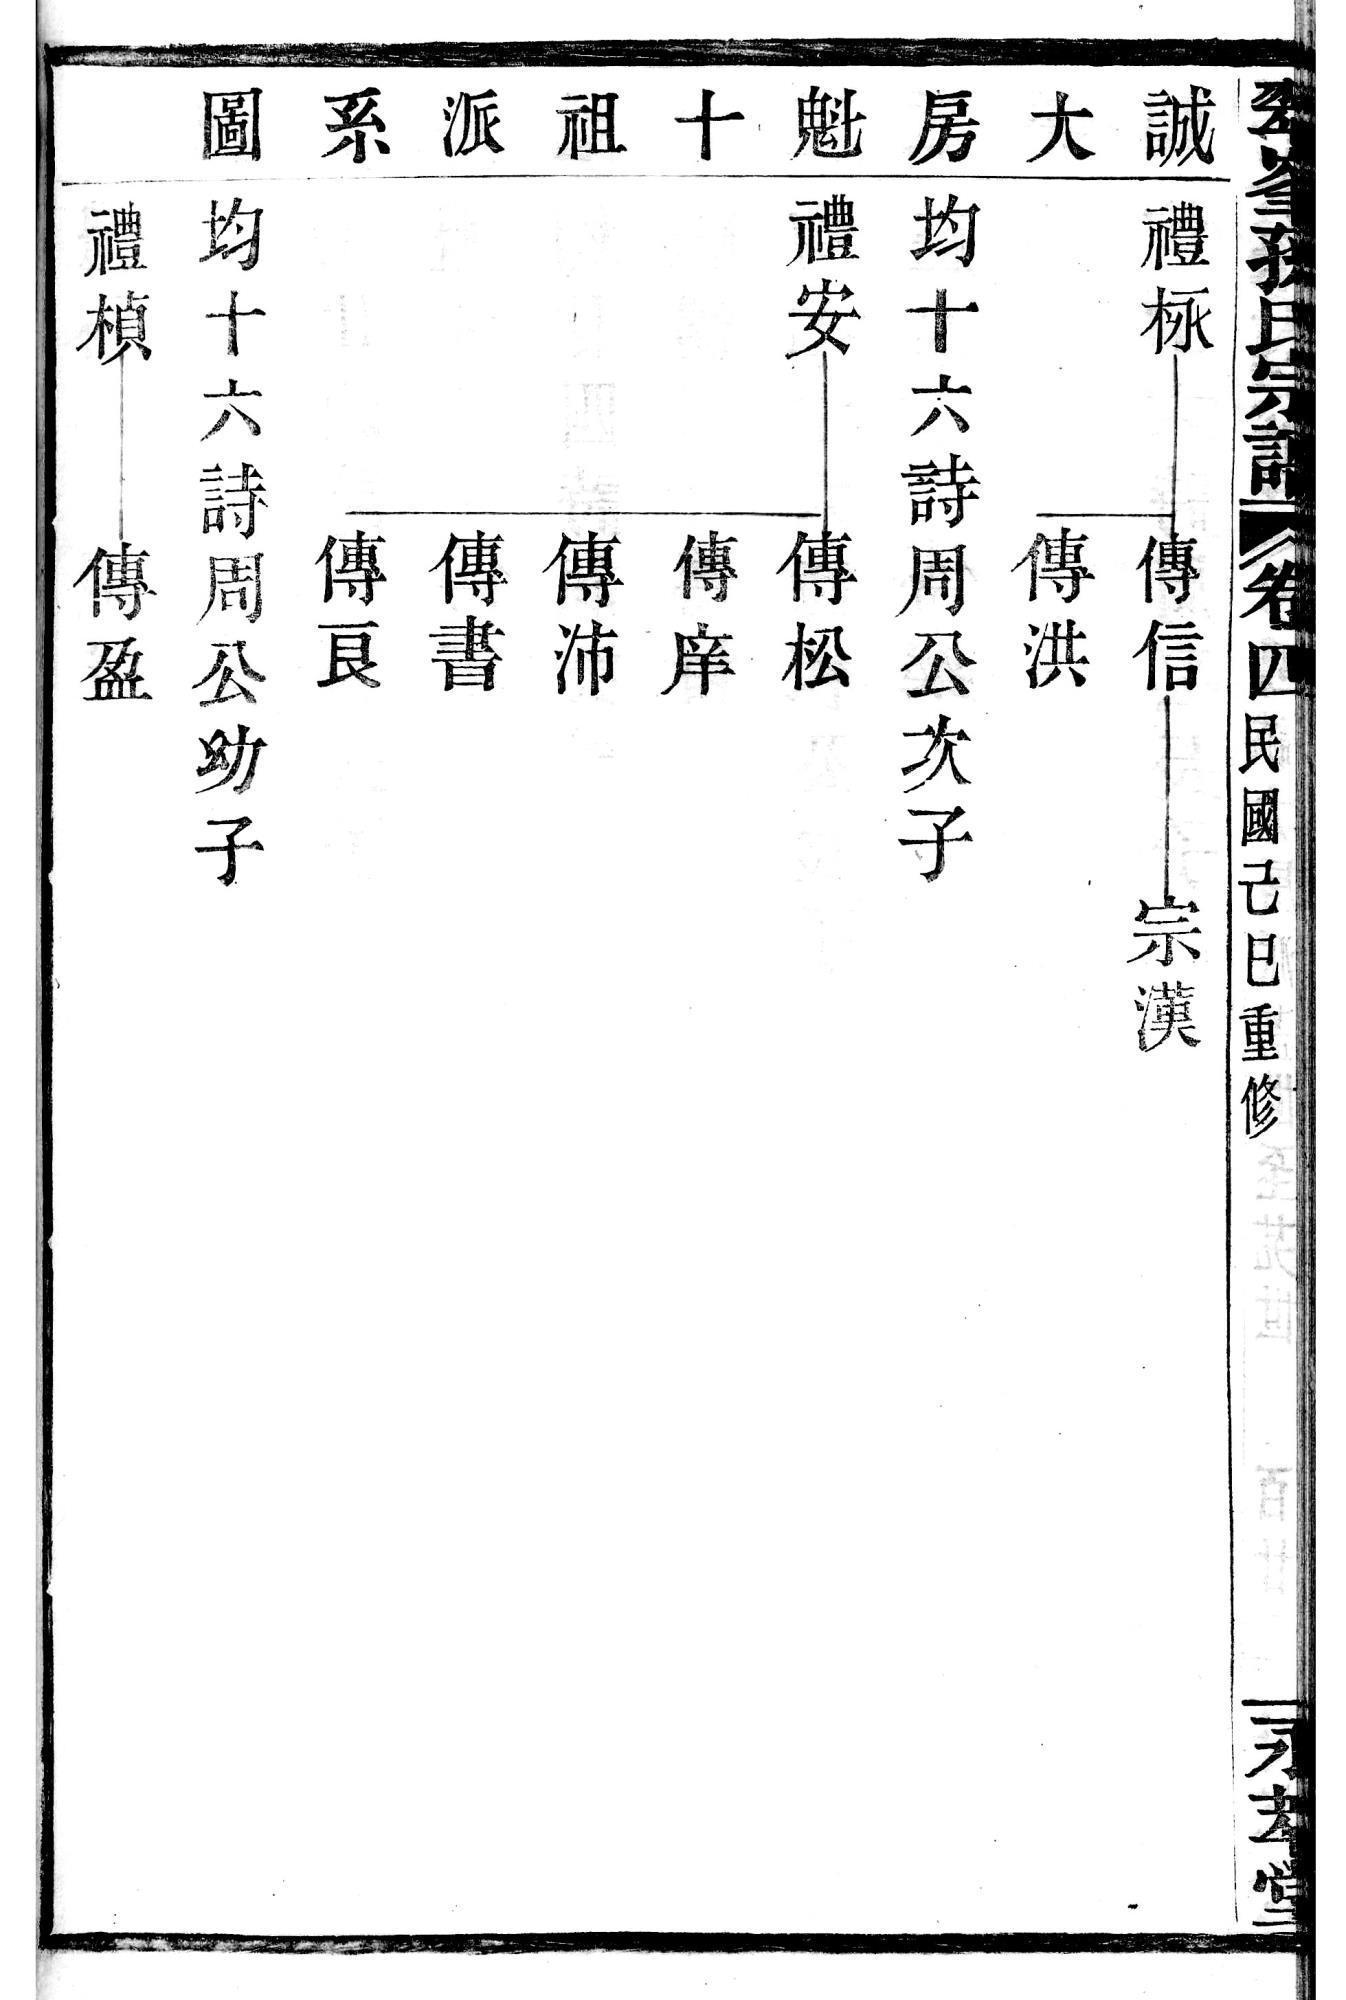 孫氏宗譜 卷四 民國己巳重修
誠大房魁十祖派系圖
禮栐
傳信
宗漢
傳洪
均十六詩周公次子
禮安
傳松
傳庠
傳沛
傳書
傳良
均十六詩周公幼子
禮楨
傳盈